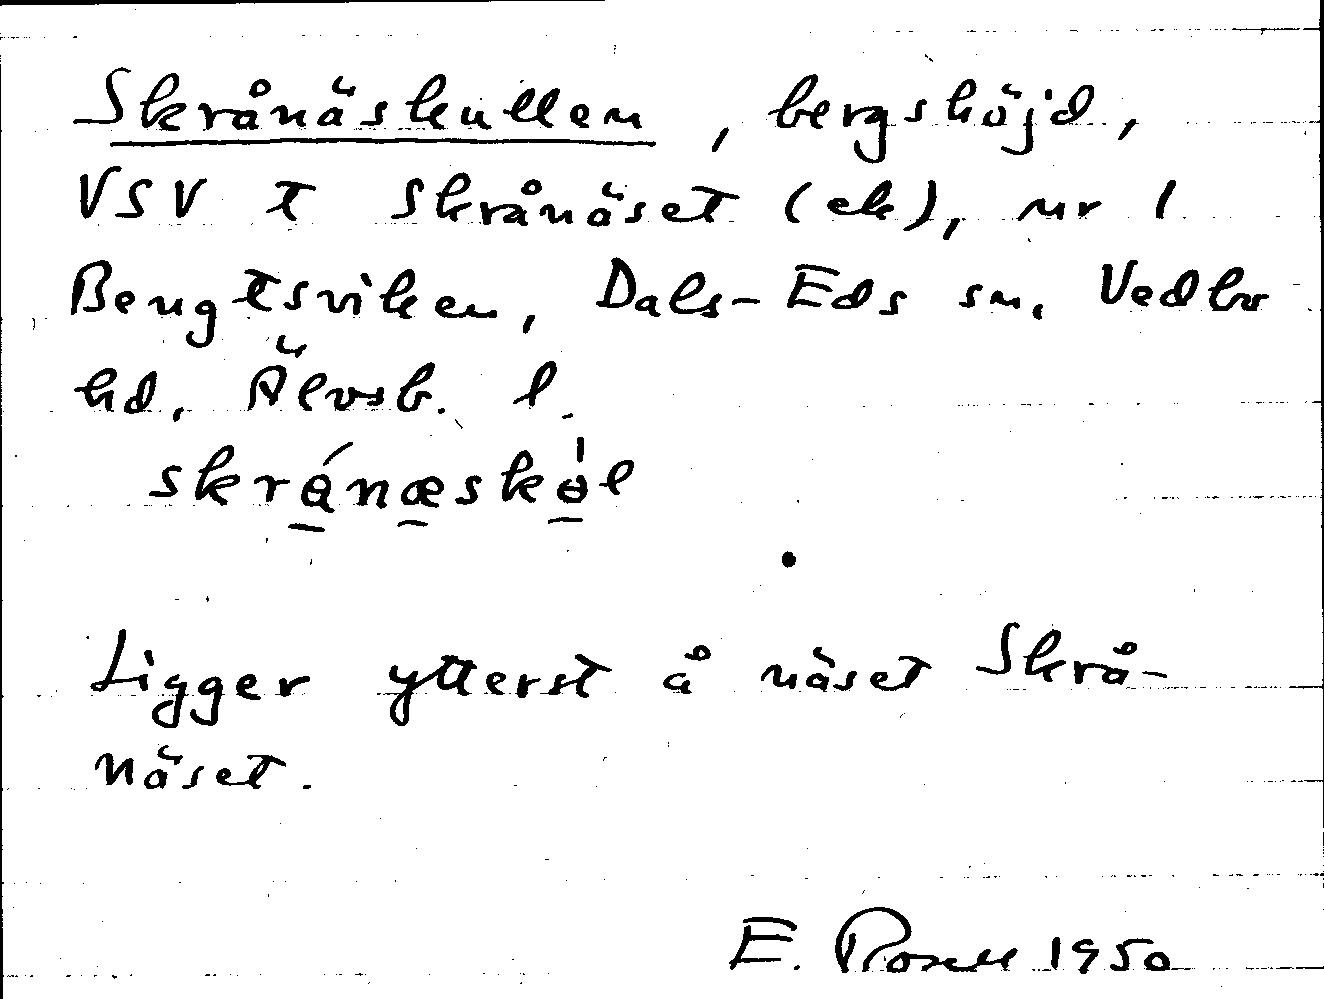 Skrånäskullen, bergshöjd,
VSV t Skrånäset (ek), nr 1
Bengtsviken, Dals-Eds sn. Vedbo
hd, Älvsb. l.
skránæskö̀l
Ligger ytterst å näset Skrå-
näset.
E. Rosell 1950